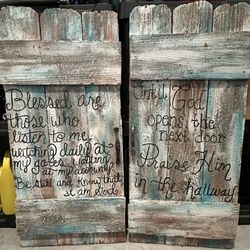 Blessed are
those who
listen to me,
watching daily at
my gates, waiting
at my doorway.
Be still and know that
I am God
Until God
opens the
next door
Praise Him
in the hallway